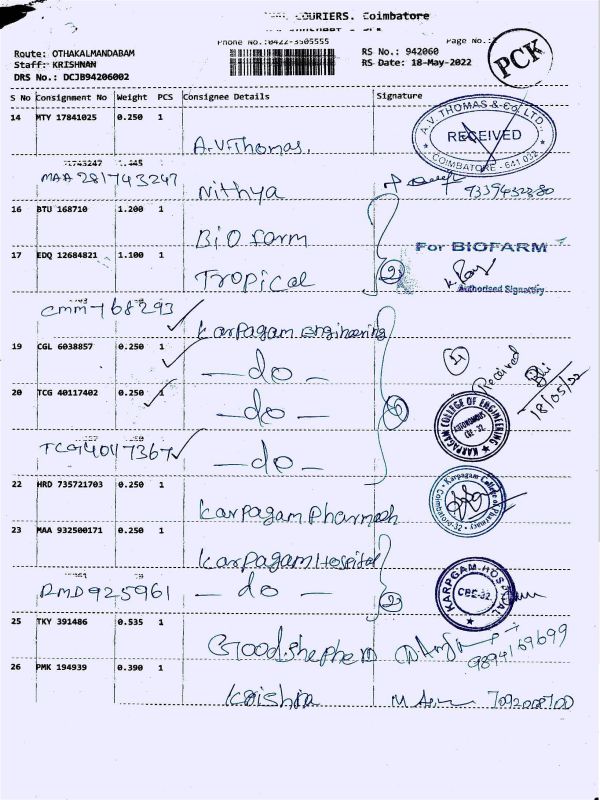 COURIERS. Coimbatore
Phone No.:0422-3505555
Page No.:
Route: OTHAKALMANDABAM
Staff: KRISHNAN
DRS No.: DCJB94206002
RS No.: 942060
RS Date: 18-May-2022
PCK
S No Consignment No Weight PCS Consignee Details Signature
14 MTY 17841025 0.250 1 A.V.Thomas.
A.V. THOMAS & Co. LTD.,
RECEIVED
COIMBATORE - 641 032
MAA 281743247 Nithya
16 BTU 168710 1.200 1 Bio farm
For BIOFARM
17 EDQ 12684821 1.100 1 Tropical 2
Authorised Signatory
CMM 768293 Karpagam engineering
19 CGL 6038857 0.250 1 - do -
Received
18/05/22
20 TCG 40117402 0.250 1 - do -
KARPAGAM COLLEGE OF ENGINEERING
AUTONOMOUS
CBE-32
TCG 40117367 - do -
22 HRD 735721703 0.250 1 Karpagam Pharmash
Karpagam College of Pharmacy
Coimbatore-32
23 MAA 932500171 0.250 1 Karpagam Hospital
DMD925961 - do - 2
KARPGAM HOSPITAL
CBE-32
25 TKY 391486 0.535 1 Good.shepherd
9894169699
26 PMK 194939 0.390 1 Krishna